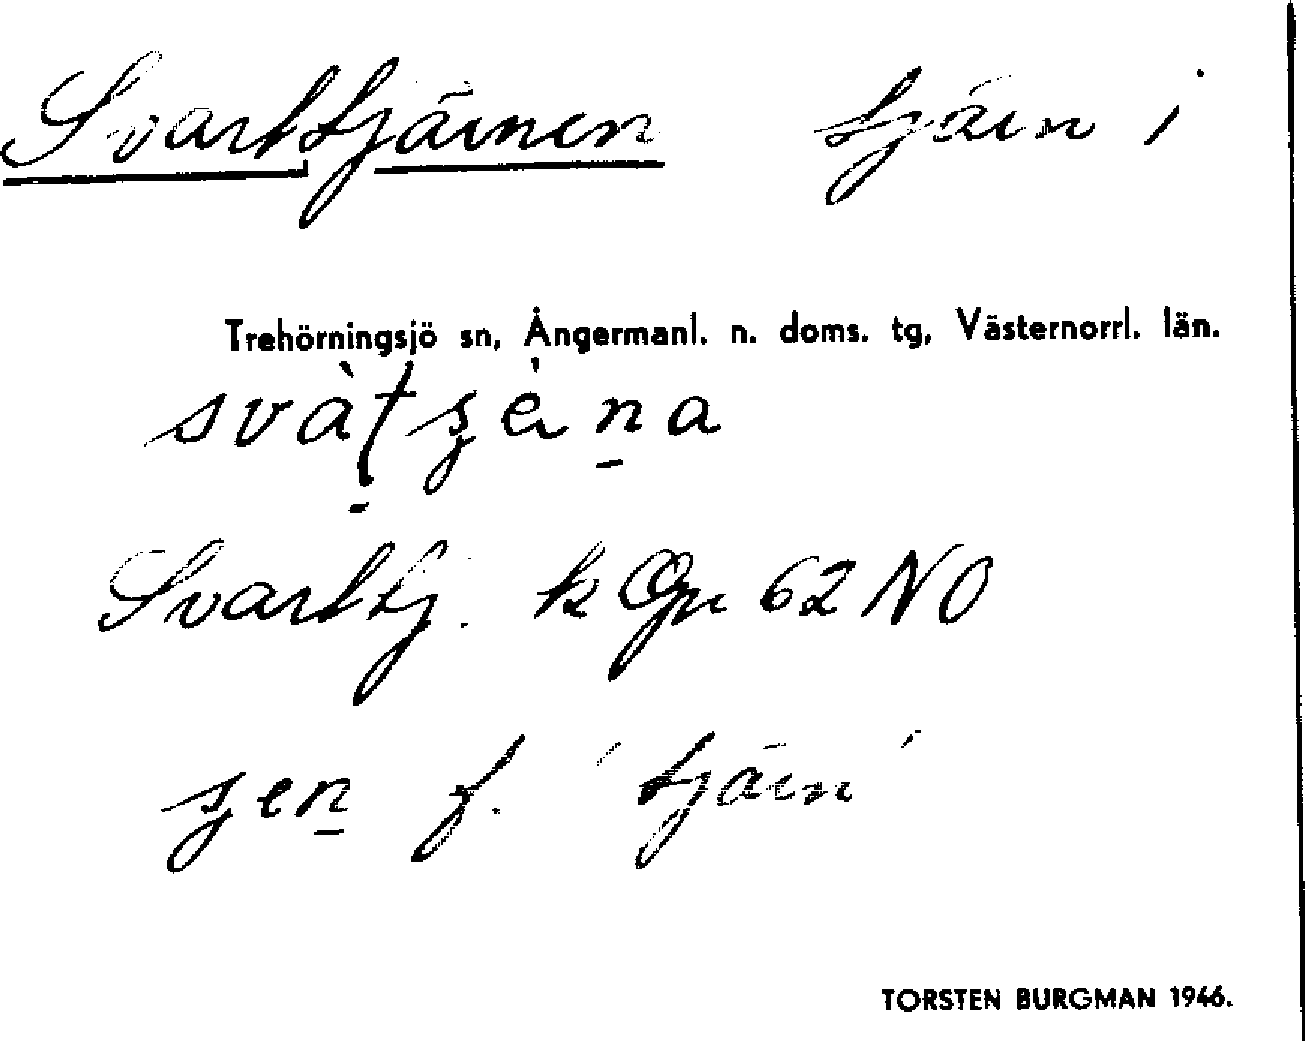 Svarttjärnen tjärn i
Trehörningsjö sn, Ångermanl. n. doms. tg, Västernorrl. län.
Svarttj. k Gpr 62 NO
f. 'tjärn'
TORSTEN BURGMAN 1946.